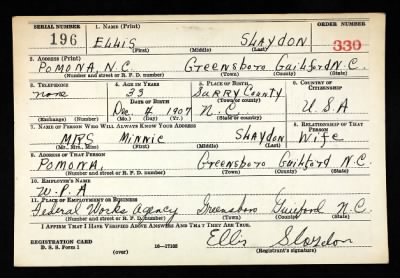 SERIAL NUMBER 1. NAME (Print) ORDER NUMBER
196 ELLIS SLAYDON 330
(First) (Middle) (Last)
2. ADDRESS (Print)
POMONA, N.C. Greensboro Guilford N.C.
(Number and street or R. F. D. number) (Town) (County) (State)
3. TELEPHONE 4. AGE IN YEARS 5. PLACE OF BIRTH 6. COUNTRY OF CITIZENSHIP
none 33 SURRY COUNTY
DATE OF BIRTH (Town or county)
Dec 4 1907 N.C. U.S.A
(Exchange) (Number) (Mo.) (Day) (Yr.) (State or country)
7. NAME OF PERSON WHO WILL ALWAYS KNOW YOUR ADDRESS 8. RELATIONSHIP OF THAT PERSON
MRS MINNIE SLAYDON Wife
(Mr., Mrs., Miss) (First) (Middle) (Last)
9. ADDRESS OF THAT PERSON
POMONA, Greensboro Guilford N.C.
(Number and street or R. F. D. number) (Town) (County) (State)
10. EMPLOYER'S NAME
W.P.A
11. PLACE OF EMPLOYMENT OR BUSINESS
Federal Works Agency Greensboro Guilford N.C.
(Number and street or R. F. D. number) (Town) (County) (State)
I AFFIRM THAT I HAVE VERIFIED ABOVE ANSWERS AND THAT THEY ARE TRUE.
Ellis Slaydon
REGISTRATION CARD
D. S. S. Form 1 (over) 16—17105 (Registrant's signature)